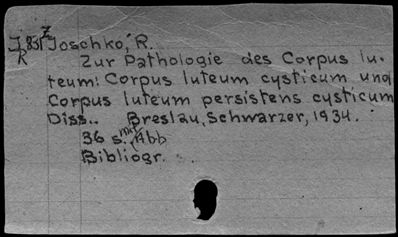 Z
J 831 Joschko, R.
R Zur Pathologie des Corpus lu-
teum: Corpus luteum cysticum und
Corpus luteum persistens cysticum
Diss.. Breslau, Schwarzer, 1934.
36 s. mit Abb
Bibliogr.